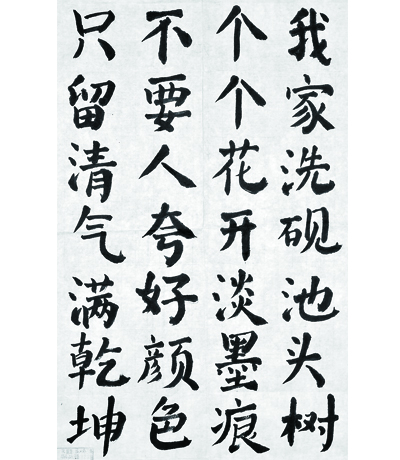 我家洗砚池头树
个个花开淡墨痕
不要人夸好颜色
只留清气满乾坤